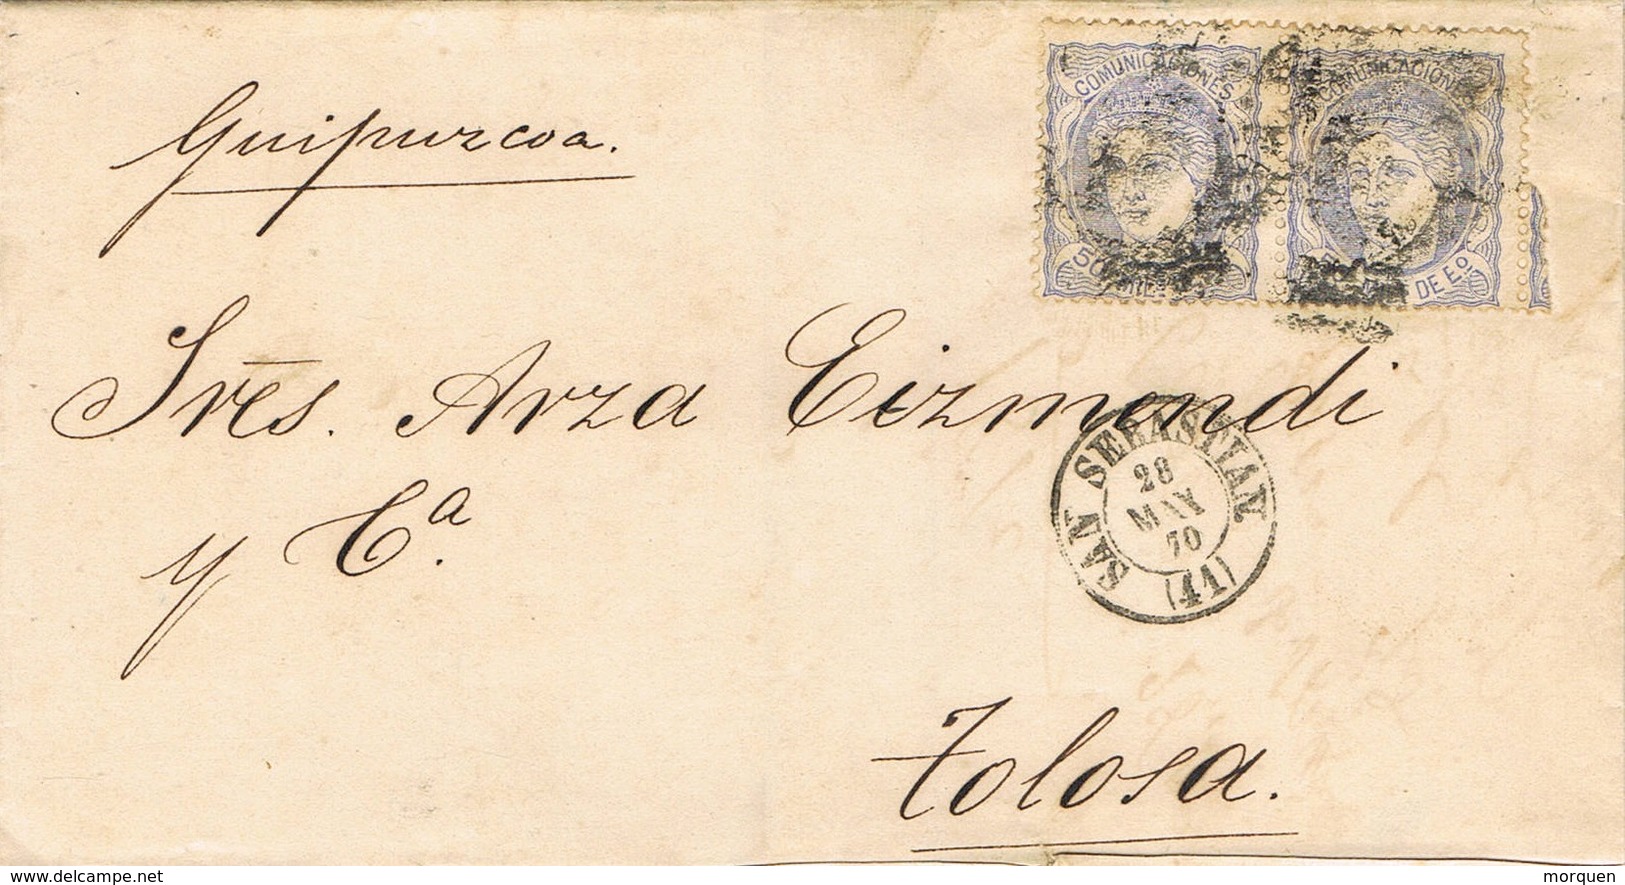 Guipuzcoa.
COMUNICACIONES
COMUNICACIONES
50
DE Eº
Srēs. Arza Eizmendi
y Cª.
SAN SEBASTIAN
28
MAY
70
(17)
Tolosa.
www.delcampe.net
morquen